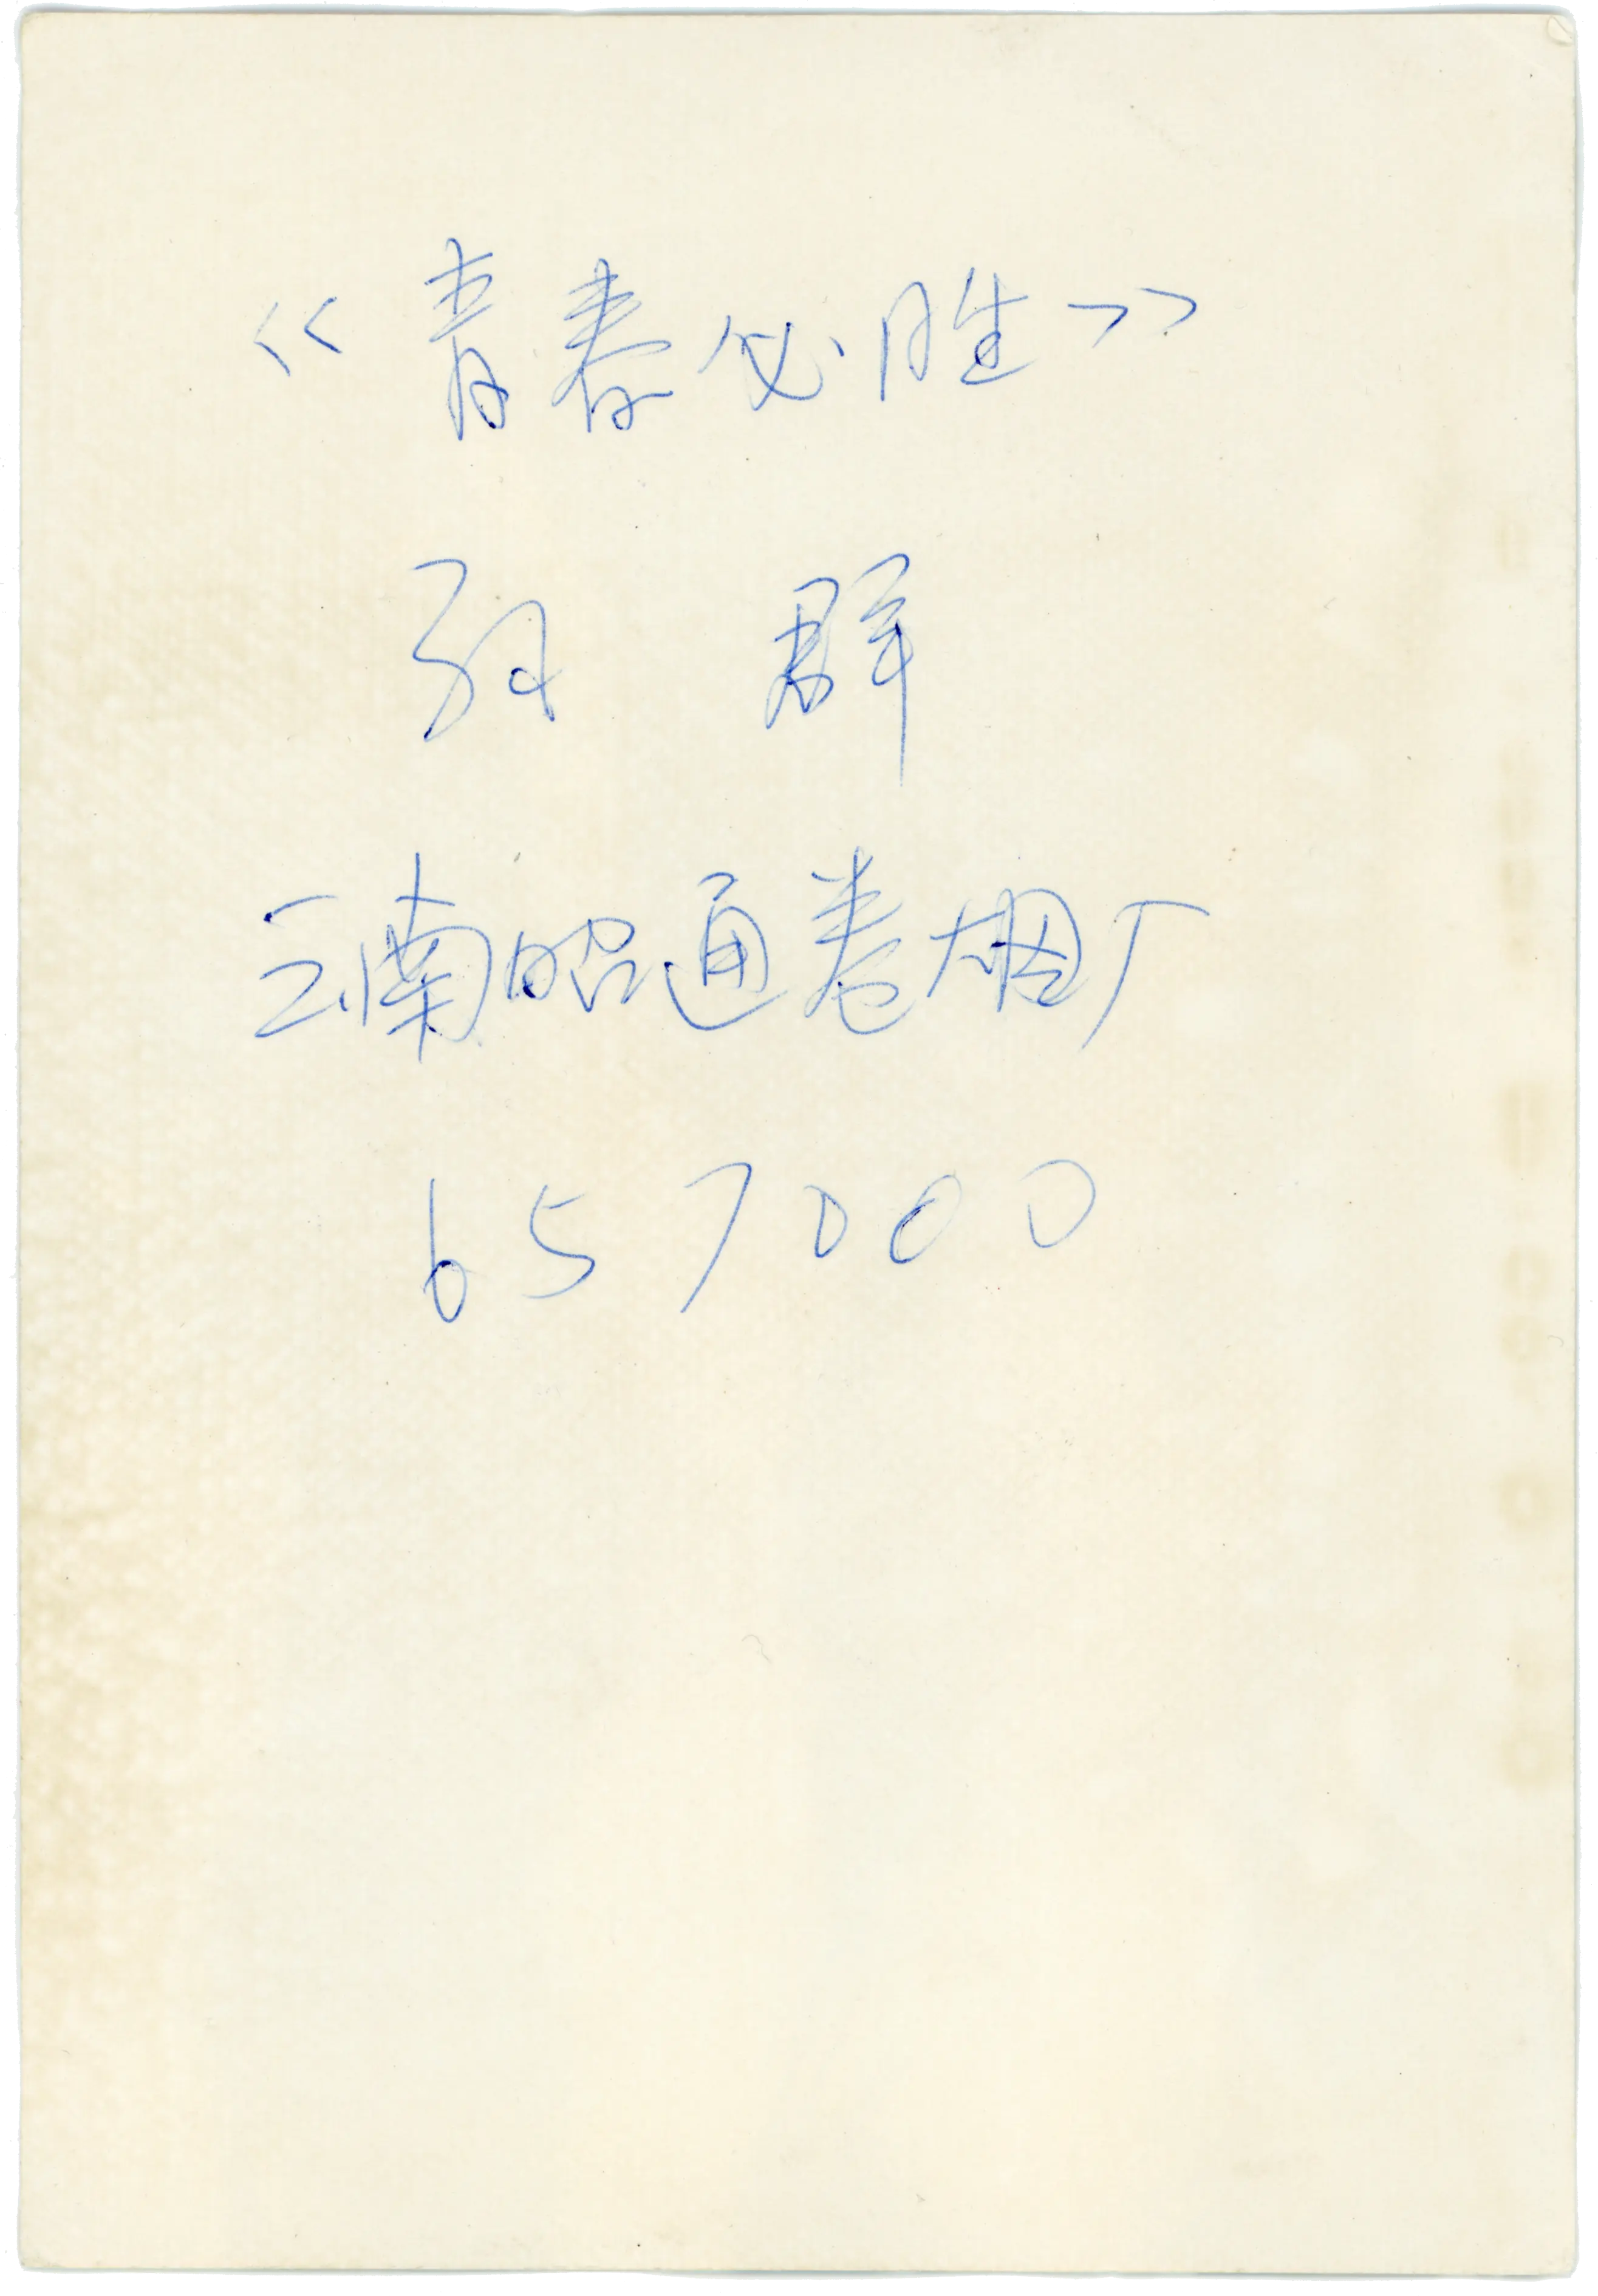 《青春必胜》
孙 群
云南昭通卷烟厂
657000